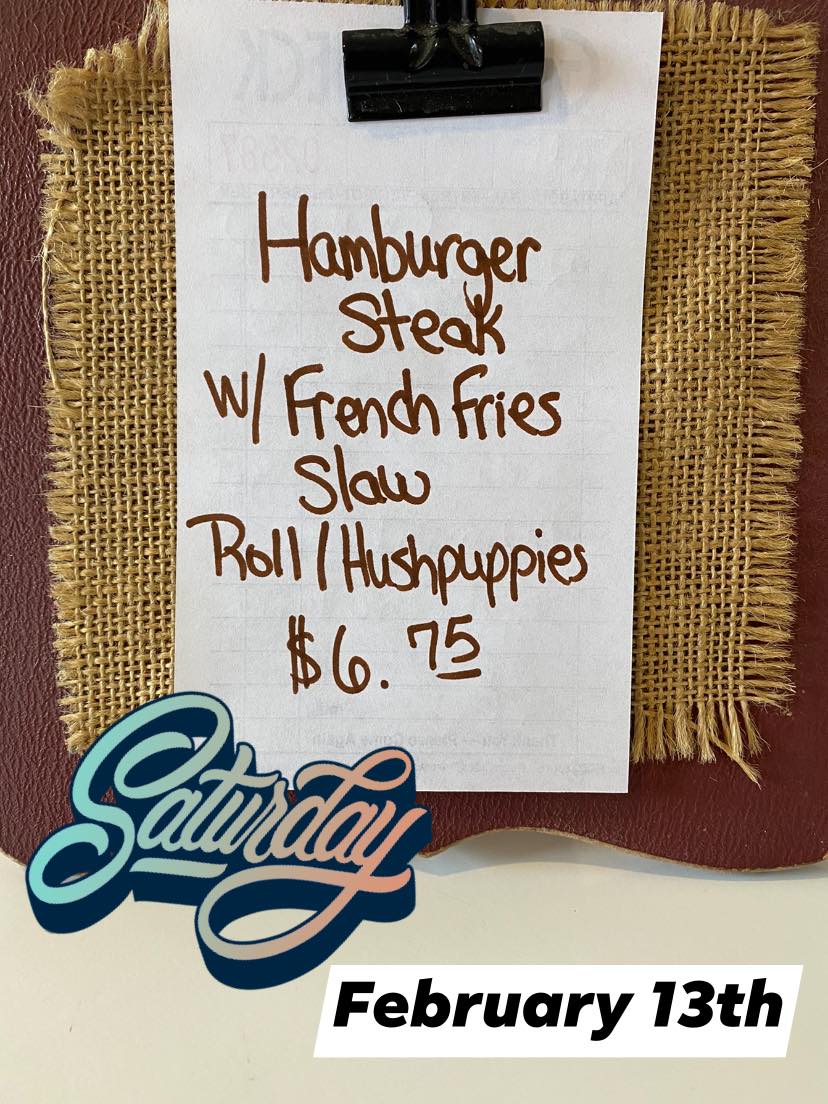 Hamburger
Steak
W/ French Fries
Slaw
Roll / Hushpuppies
$6.75
Saturday
February 13th